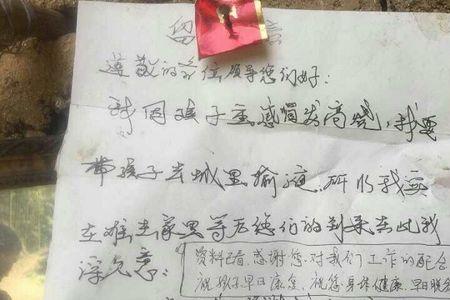 留 言
尊敬的各位领导您们好:
我因孩子重感惆发高烧,我要
带孩子去城里输液.所以我要
在家里等 您们的到来在此我
深欠意:
资料已看,感谢您对我们工作的配合
祝孩子早日康复,祝您身体健康.早日脱